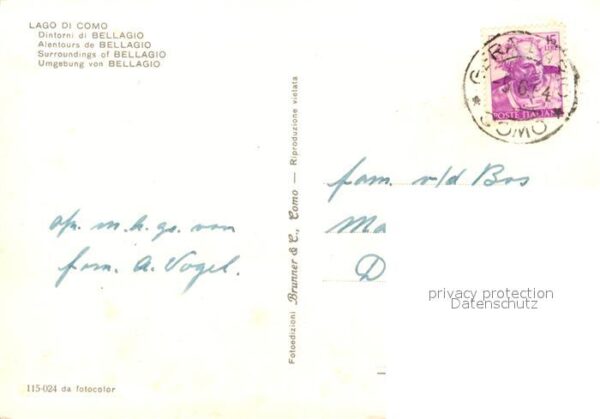 LAGO DI COMO
Dintorni di BELLAGIO
Alentours de BELLAGIO
Surroundings of BELLAGIO
Umgebung von BELLAGIO
15
LIRE
POSTE ITALIANE
COMO
fam. v/d Bos
Ma
D
m. h. gr. van
fam. A. Vogel.
Fotoedizioni Brunner & C., Como — Riproduzione vietata
privacy protection
Datenschutz
115-024 da fotocolor